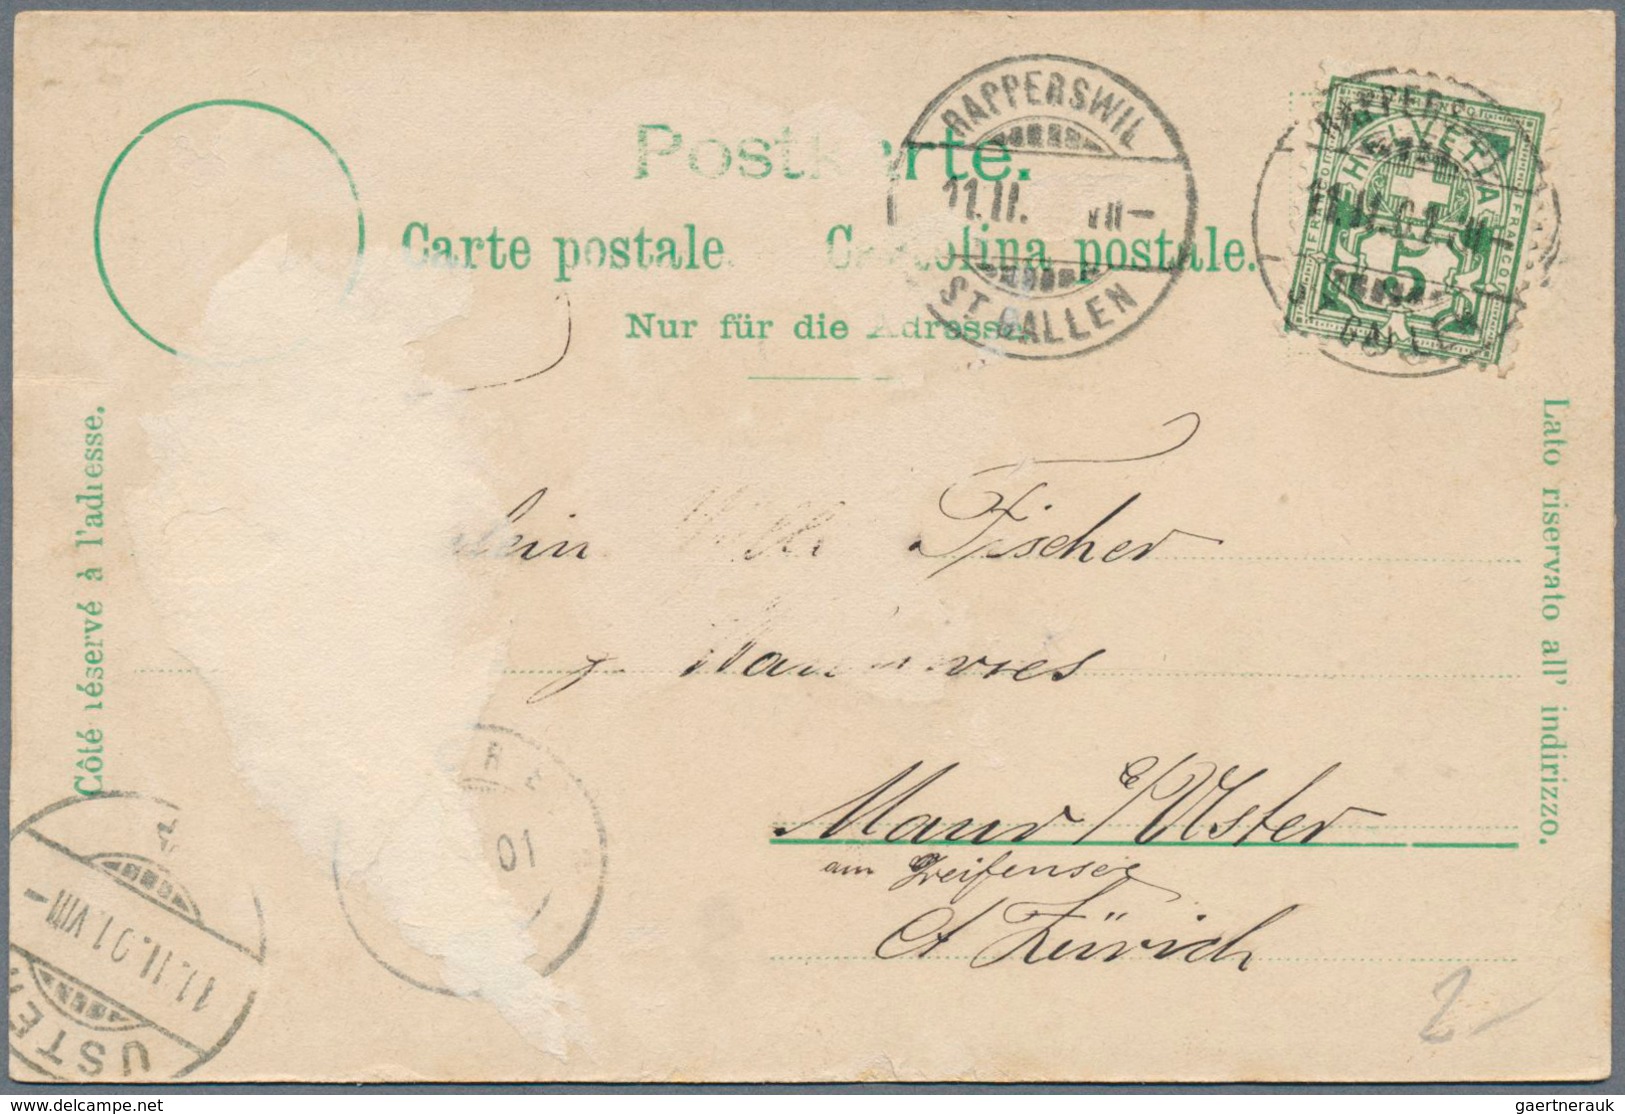 Postkarte.
Carte postale. Cartolina postale.
Nur für die Adresse
Côté réservé à l'adresse.
Lato riservato all' indirizzo.
RAPPERSWIL
11.II. VII-
ST. GALLEN
RAPPERS
11.II.01.VII-
GAL
HELVETIA
FRANCO
5
lein Fischer
z.
Maur c/Uster
am Greifensee
Ct Zürich
01
11.II.01.VIII-
USTER
2-
gaertnerauk